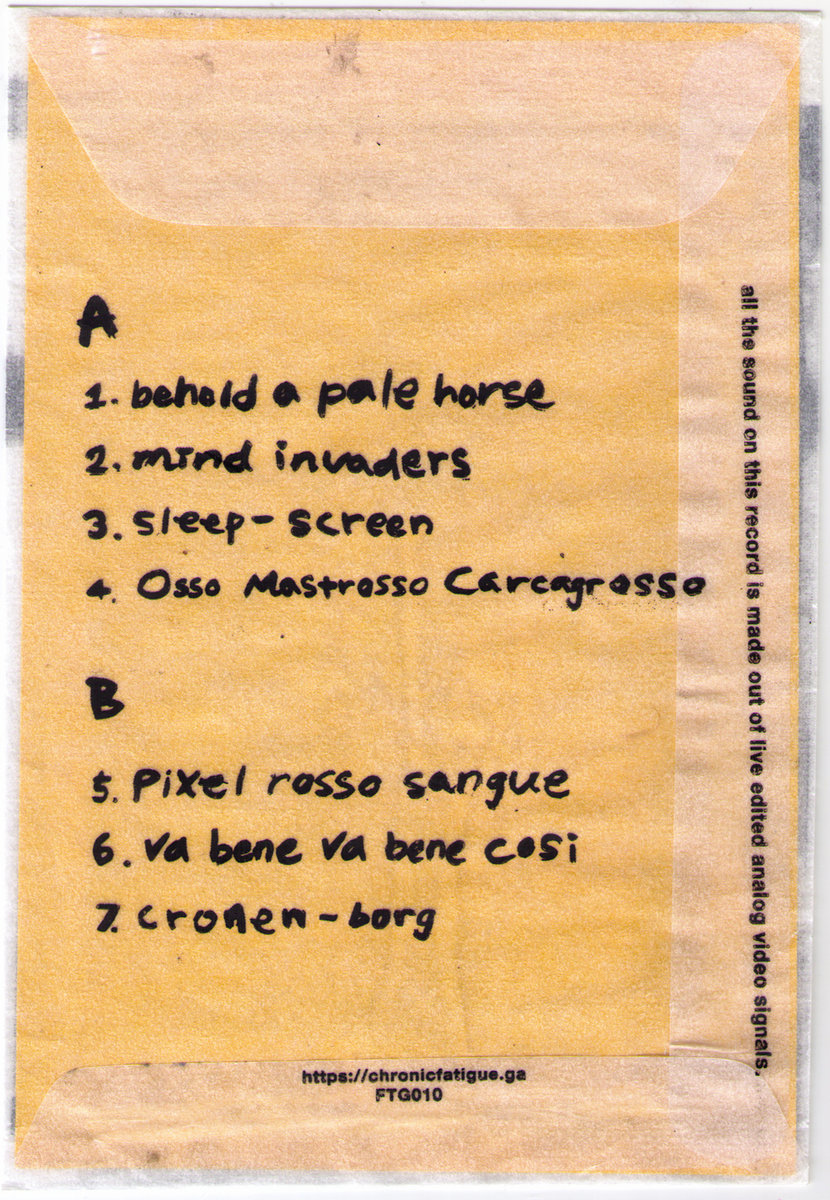 A
1. behold a pale horse
2. mind invaders
3. sleep-screen
4. Osso Mastrosso Carcagrosso
B
5. Pixel rosso sangue
6. va bene va bene cosi
7. cronen-borg
all the sound on this record is made out of live edited analog video signals.
https://chronicfatigue.ga
FTG010